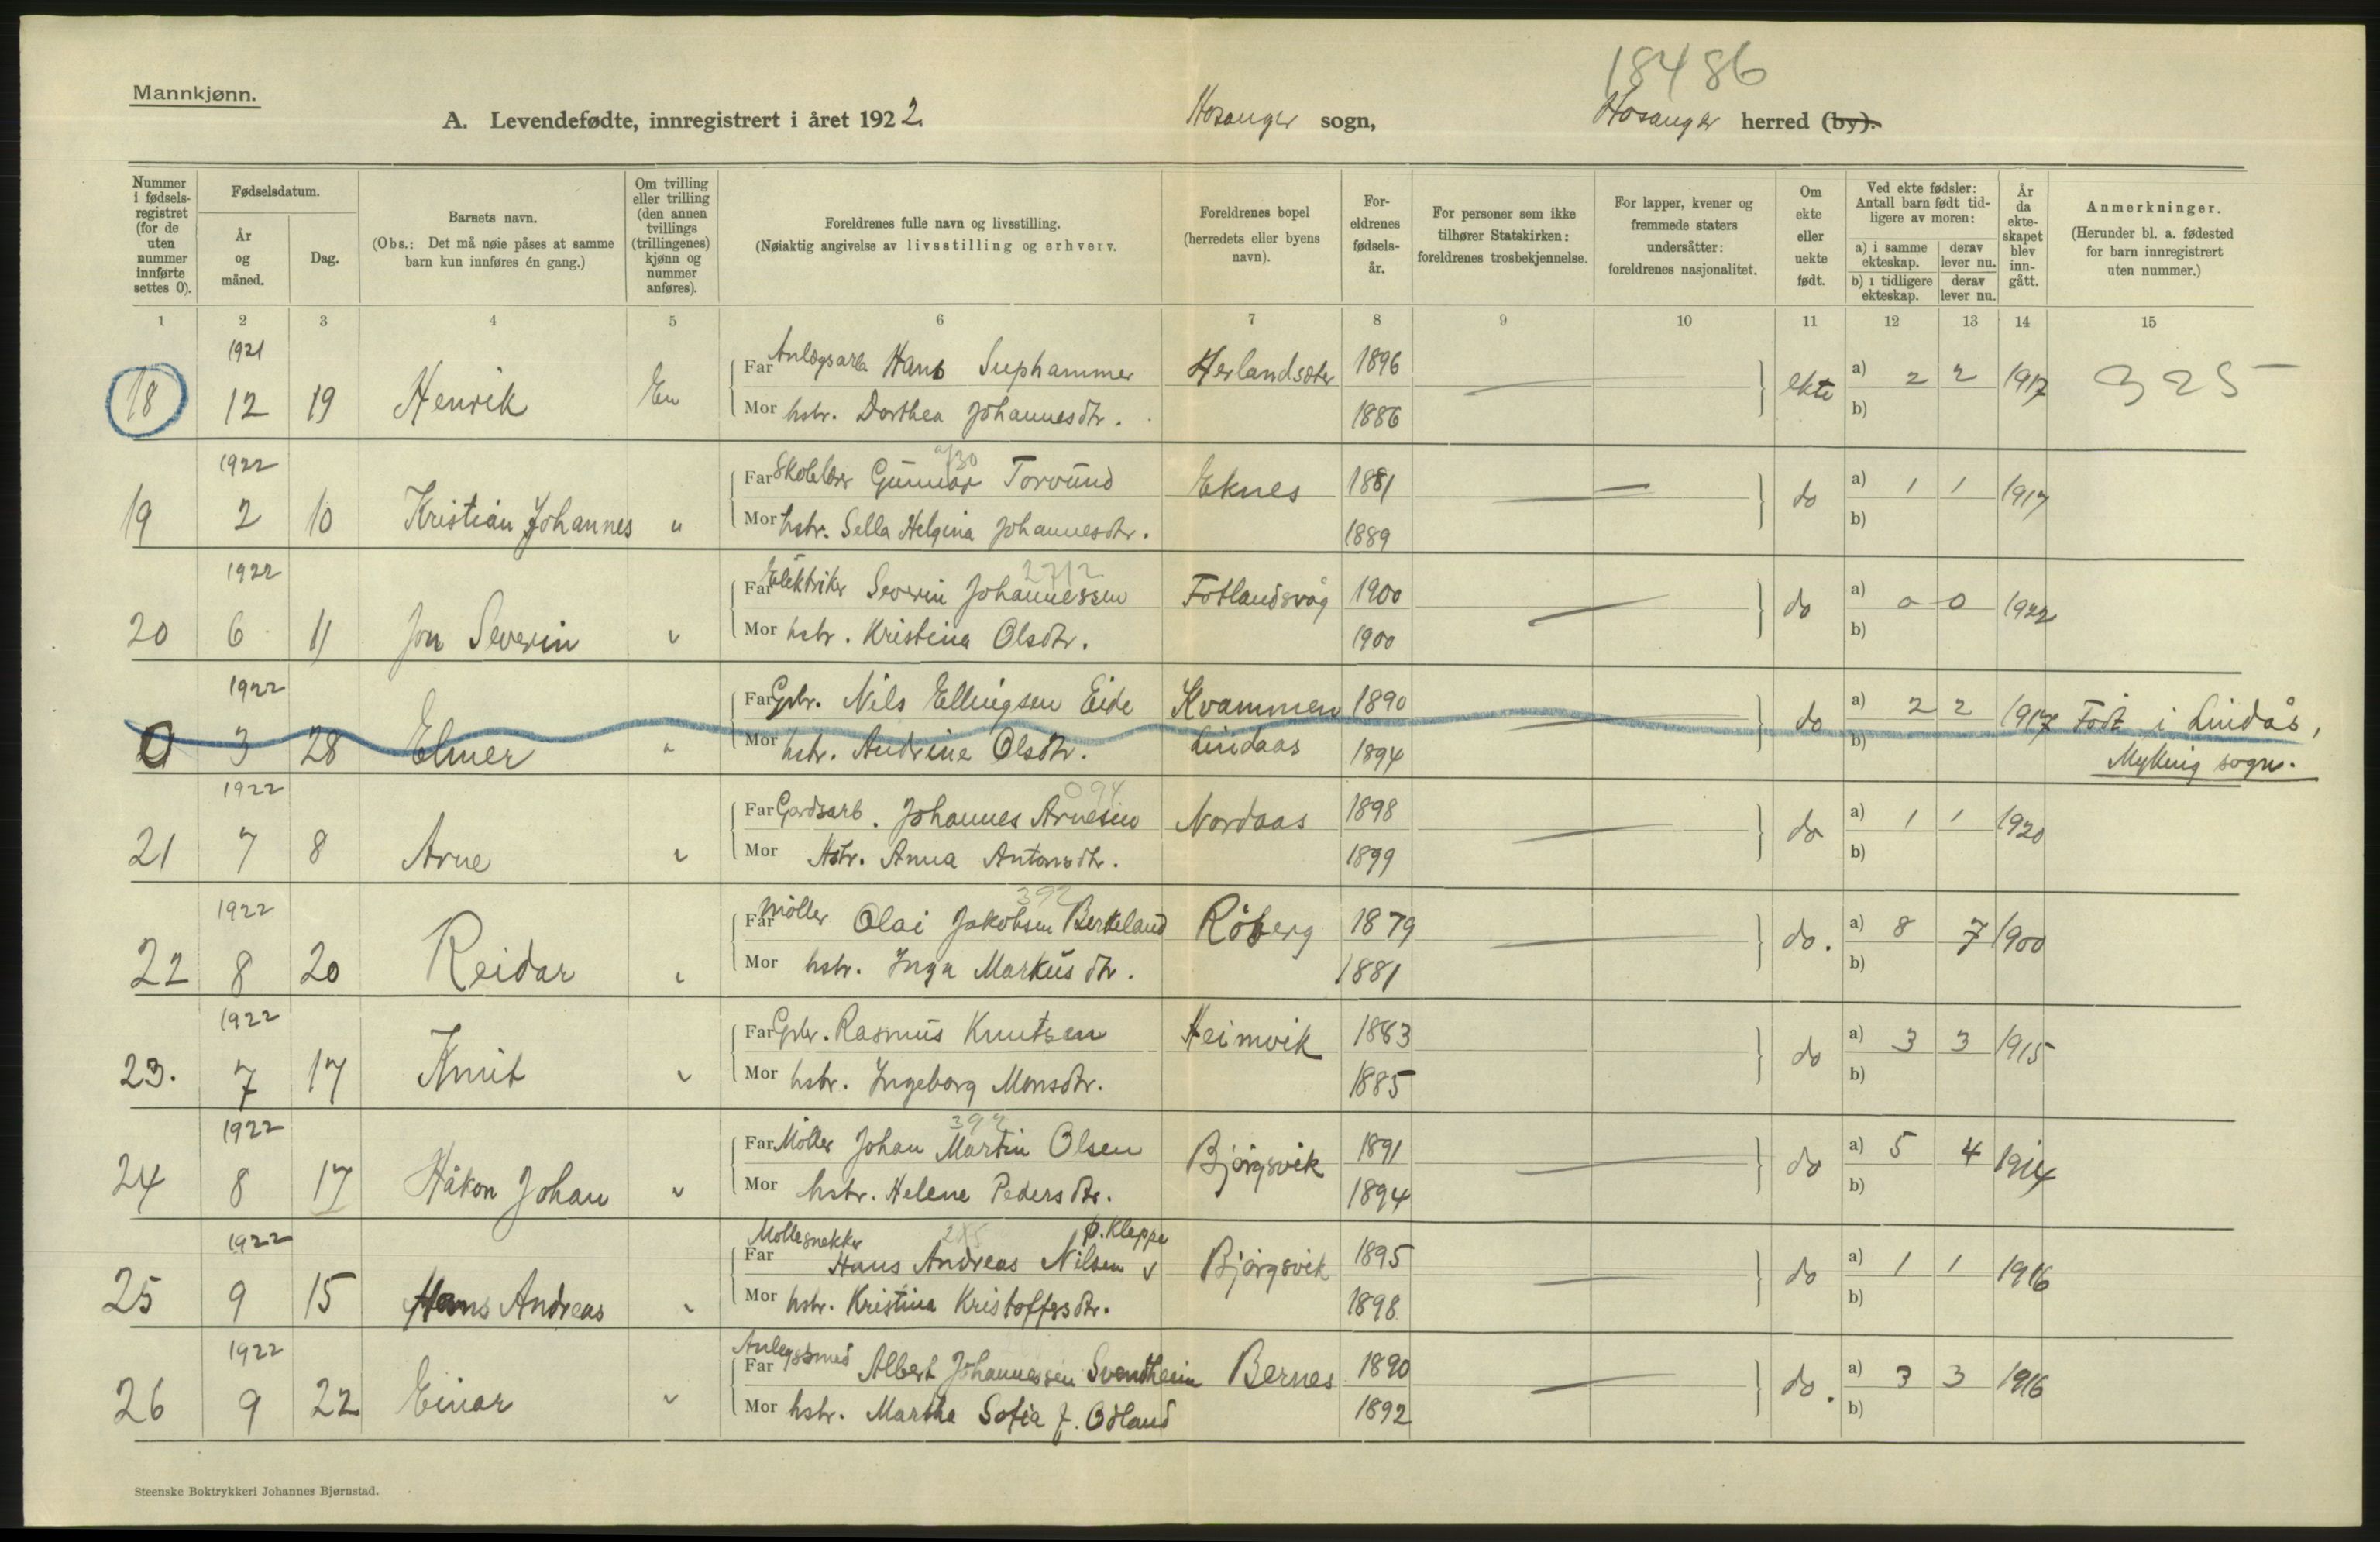 18486
Mannkjønn.
A. Levendefødte, innregistrert i året 1922 Hosanger sogn, Hosanger herred (by).
Nummer i fødselsregistret (for de uten nummer innførte settes 0).
Fødselsdatum.
År og måned.
Dag.
Barnets navn.
(Obs.: Det må nøie påses at samme barn kun innføres én gang.)
Om tvilling eller trilling (den annen tvillings (trillingenes) kjønn og nummer anføres).
Foreldrenes fulle navn og livsstilling.
(Nøiaktig angivelse av livsstilling og erhverv.
Foreldrenes bopel (herredets eller byens navn).
Foreldrenes fødselsår.
For personer som ikke tilhører Statskirken: foreldrenes trosbekjennelse.
For lapper, kvener og fremmede staters undersåtter: foreldrenes nasjonalitet.
Om ekte eller uekte født.
Ved ekte fødsler: Antall barn født tidligere av moren:
a) i samme ekteskap. derav lever nu.
b) i tidligere ekteskap. derav lever nu.
År da ekteskapet blev inngått.
Anmerkninger.
(Herunder bl. a. fødested for barn innregistrert uten nummer.)
1 2 3 4 5 6 7 8 9 10 11 12 13 14 15
1921
18 12 19 Henrik En Far Anlægsarb Hans Suphammer Herlandsæter 1896 ekte a) 2 2 1917 325
Mor hstr. Dorthea Johannesdtr. 1886 b)
1922
19 2 10 Kristian Johannes " Far Skolelær Gunnar Torvund Eknes 1881 do a) 1 1 1917
Mor hstr. Sella Helgina Johannesdtr. 1889 b)
1922 2712
20 6 11 Jon Severin " Far Elektriker Severin Johannessen Fotlandsvåg 1900 do a) 0 0 1922
Mor hstr. Kristina Olsdtr. 1900 b)
1922
0 3 28 Elmer " Far Gbr. Nils Ellingsen Eide Kvammen 1890 do a) 2 2 1917 Født i Lindås,
Mor hstr. Andrine Olsdtr. Lindaas 1894 b) Myking sogn.
1922 094
21 7 8 Arne " Far Gardsarb. Johannes Arnesen Nordaas 1898 do a) 1 1 1920
Mor Hstr. Anna Antonsdtr. 1899 b)
1922 392
22 8 20 Reidar " Far Møller Olai Jakobsen Berkeland Röberg 1879 do. a) 8 7 1900
Mor hstr. Inga Markusdtr. 1881 b)
1922
23. 7 17 Knut " Far Gbr. Rasmus Knutsen Heimvik 1883 do a) 3 3 1915
Mor hstr. Ingeborg Monsdtr. 1885 b)
1922 392
24 8 17 Håkon Johan " Far Møller Johan Martin Olsen Bjørgsvik 1891 do a) 5 4 1914
Mor hstr. Helene Pedersdtr. 1894 b)
1922 Møllesnekker 285 p. Kleppe
25 9 15 Hans Andreas " Far Hans Andreas Nilsen v Bjørgsvik 1895 do a) 1 1 1916
Mor hstr. Kristina Kristoffersdtr. 1898 b)
1922
26 9 22 Einar " Far Anlegssmed Albert Johannessen Svendheim Bernes 1890 do. a) 3 3 1916
Mor hstr. Martha Sofia J. Odland 1892 b)
Steenske Boktrykkeri Johannes Bjørnstad.